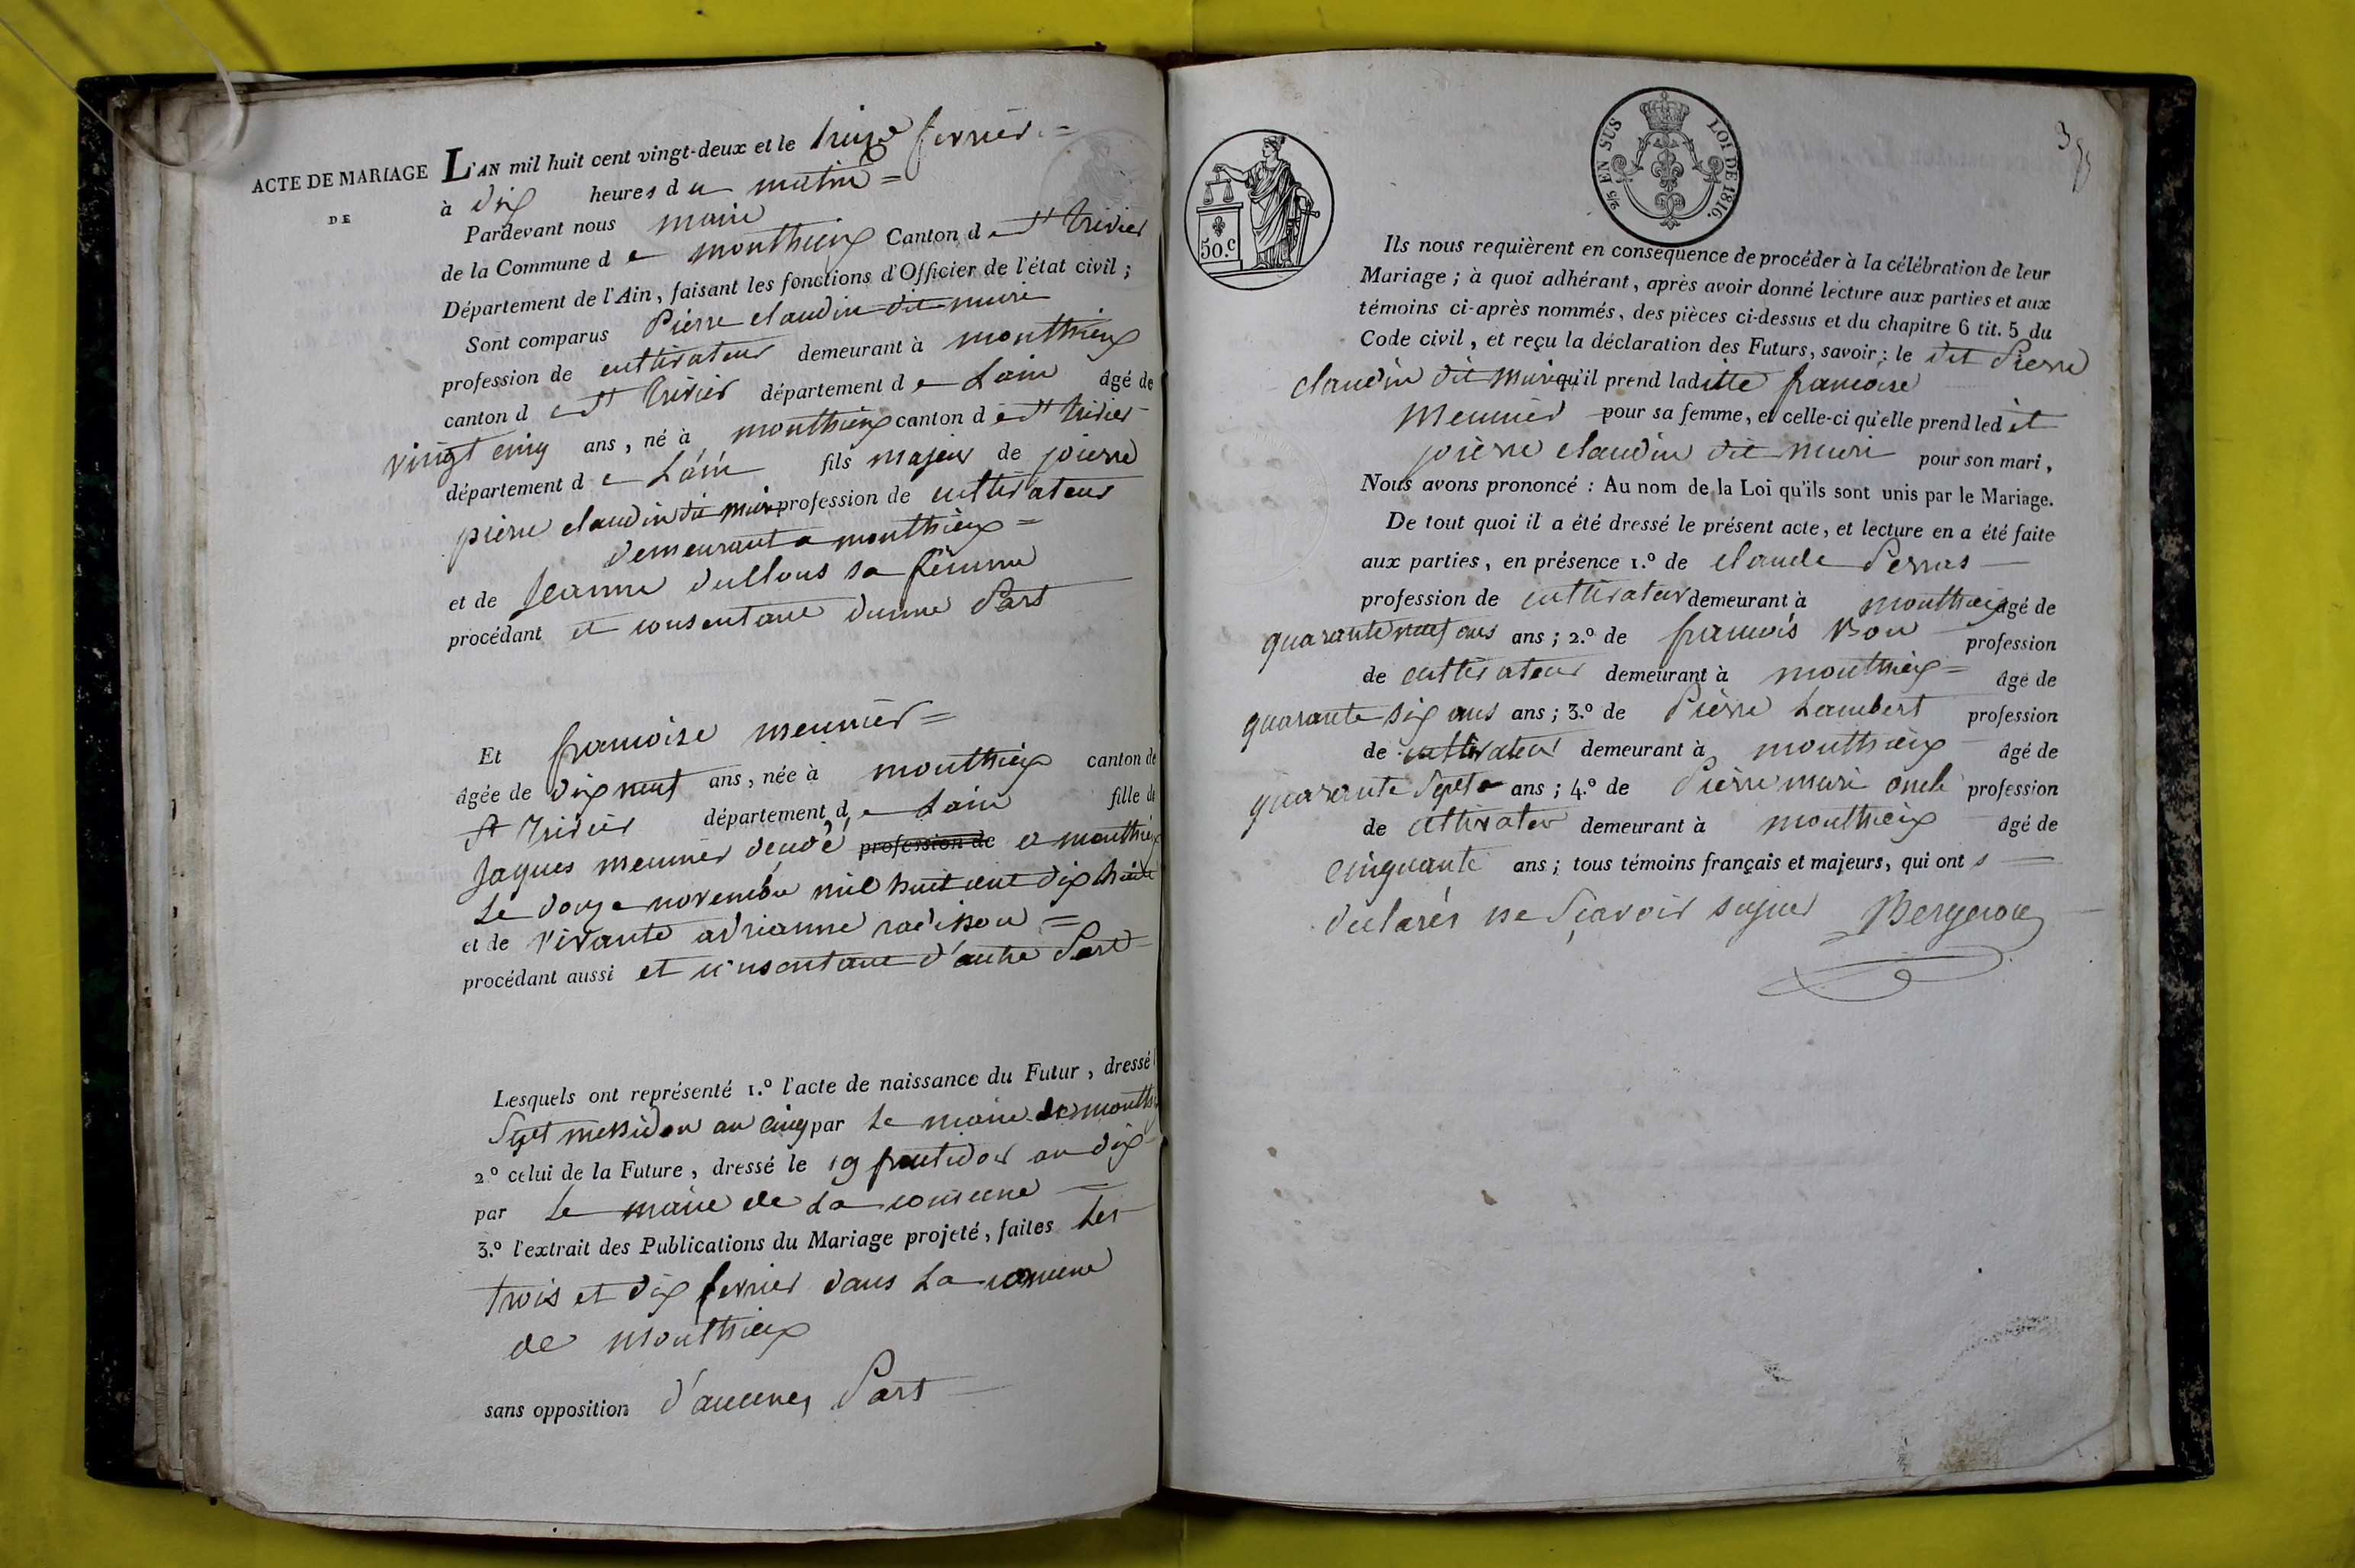 ACTE DE MARIAGE
DE
L'AN mil huit cent vingt-deux et le treize fevrier =
à dix heures du matin =
Pardevant nous maire
de la Commune de monthieux Canton de st trivier
Département de l'Ain, faisant les fonctions d'Officier de l'état civil;
Sont comparus Pierre claudin dit muri
profession de cultivateur demeurant à monthieux
canton de st trivier département de Lain âgé de
vingt cinq ans, né à monthieux canton de st trivier
département de Lain fils majeur de pierre
pierre claudin dit muri profession de cultivateur
demeurant a monthieux =
et de Jeanne sa femme
procédant et consentant dunne Part
Et francoise meunier =
âgée de dix neuf ans, née à monthieux canton de
st trivier département de Lain fille de
Jaques meunier décédé profession de a monthieux
Le douze novembre mil huit cent dix huit
et de vivante adrianne radisson =
procédant aussi et consentant d'autre Part
Lesquels ont représenté 1.º l'acte de naissance du Futur, dressé
Sept messidor an cinq par Le maire de month
2.º celui de la Future, dressé le 19 fructidor an dix
par Le maire de La comune
3.º l'extrait des Publications du Mariage projeté, faites Les
trois et dix fevrier dans La comune
de monthieux
sans opposition d'aucunes Part
50.c
2/5 EN SUS LOI DE 1816.
Ils nous requièrent en conséquence de procéder à la célébration de leur
Mariage; à quoi adhérant, après avoir donné lecture aux parties et aux
témoins ci-après nommés, des pièces ci-dessus et du chapitre 6 tit. 5 du
Code civil, et reçu la déclaration des Futurs, savoir: le dit Pierre
claudin dit muri qu'il prend laditte francoise
Meunier pour sa femme, et celle-ci qu'elle prend ledit
pierre claudin dit muri pour son mari,
Nous avons prononcé: Au nom de la Loi qu'ils sont unis par le Mariage.
De tout quoi il a été dressé le présent acte, et lecture en a été faite
aux parties, en présence 1.º de claude Perras
profession de cultivateur demeurant à monthieux âgé de
quarante neuf ans ans; 2.º de francois Bon profession
de cultivateur demeurant à monthieux = âgé de
quarante six ans ans; 3.º de Pierre Lambert profession
de cultivateur demeurant à monthieux âgé de
quarante Sept ans; 4.º de Pierre muri oncle profession
de cultivateur demeurant à monthieux âgé de
cinquante ans; tous témoins français et majeurs, qui ont s
declarés ne sçavoir signer Bergeron